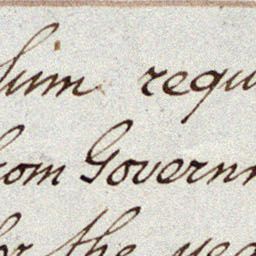 Sum requ
from Governm
for the yea